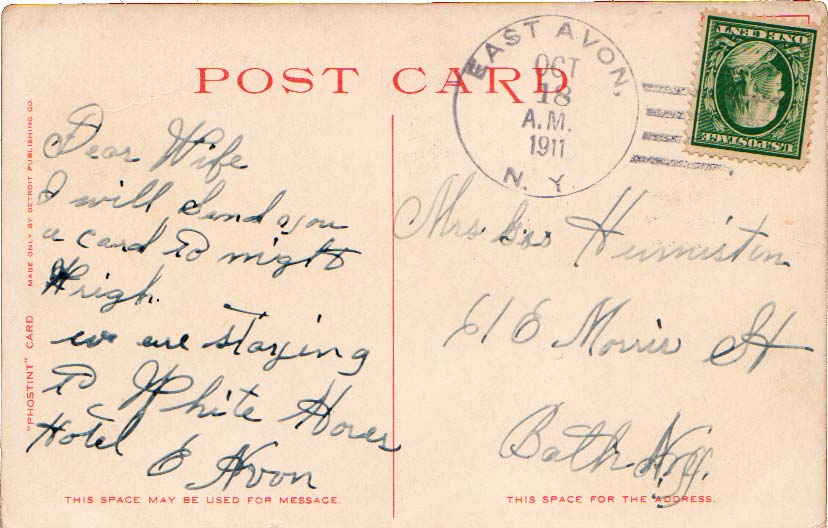 POST CARD
EAST AVON,
OCT
18
A.M.
1911
N. Y.
U.S. POSTAGE
ONE CENT
Dear Wife
I will send you
a card to night
we are staying
to White Horse
Hotel E Avon
Mrs Gus Hermiston
61 E Morris St
Bath N.Y.
"PHOSTINT" CARD
MADE ONLY BY DETROIT PUBLISHING CO.
THIS SPACE MAY BE USED FOR MESSAGE.
THIS SPACE FOR THE ADDRESS.